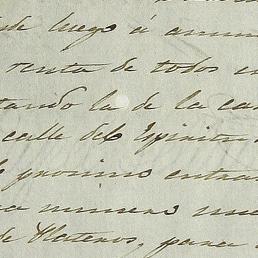 de luego á anun
renta de todos
tando la de la ca
calle del Espiritu
proximo entra
numeros
de Plateros, para